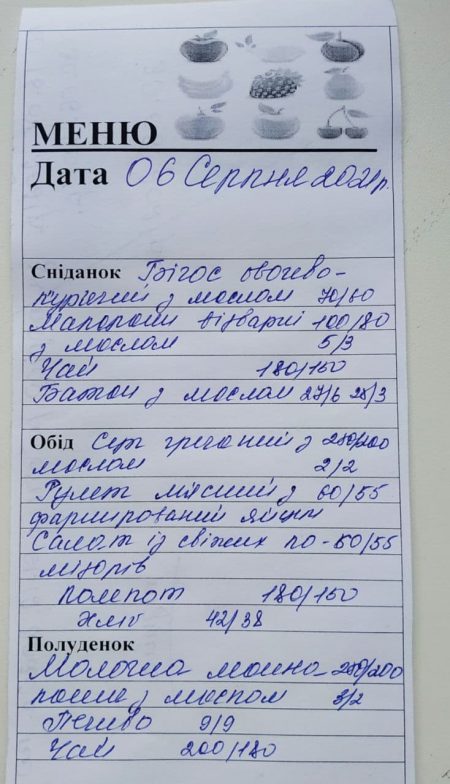 МЕНЮ
Дата 06 Серпня 2021р.
Сніданок Бігос овочево-
курячий з маслом 70/60
Макарони відварні 100/80
з маслом 5/3
Чай 180/150
Батон з маслом 27/6 25/3
Обід Суп гречаний з 250/200
маслом 2/2
Рулет мясний з 60/55
фарширований яйцем
Салат із свіжих по- 60/55
мідорів
Компот 180/150
Хліб 42/38
Полуденок
Молочна манна 250/200
каша з маслом 3/2
Печиво 9/9
Чай 200/180